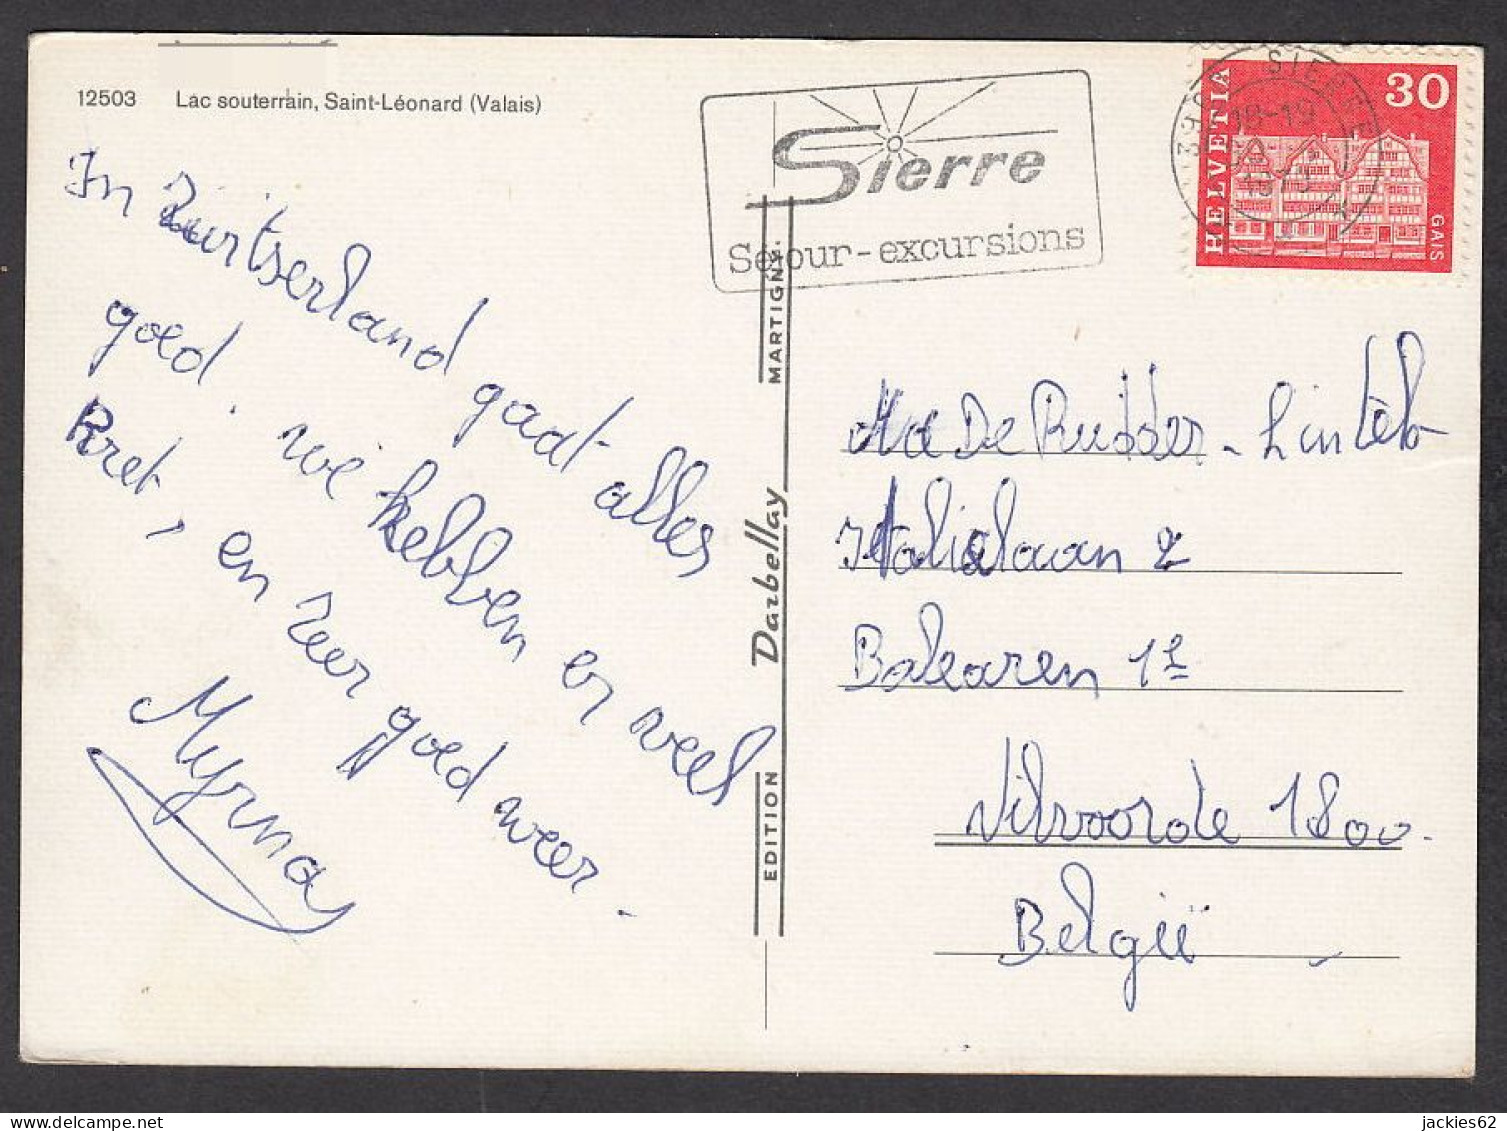 12503 Lac souterrain, Saint-Léonard (Valais)
In Zwitserland gaat alles
goed. We hebben er veel
Pret, en zeer goed weer.
Myrna
Sierre
Séjour-excursions
SIERRE
18-19
HELVETIA
30
GAIS
EDITION Darbellay MARTIGNY
De Ridder - Lintels
Italialaan 2
Balearen 12
Vilvoorde 1800.
België
jackies62